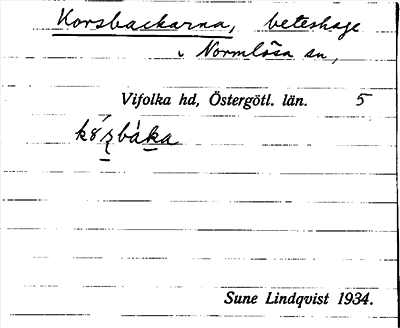 Korsbackarna, beteshage
i Normlösa sn,
Vifolka hd, Östergötl. län. 5
Sune Lindqvist 1934.